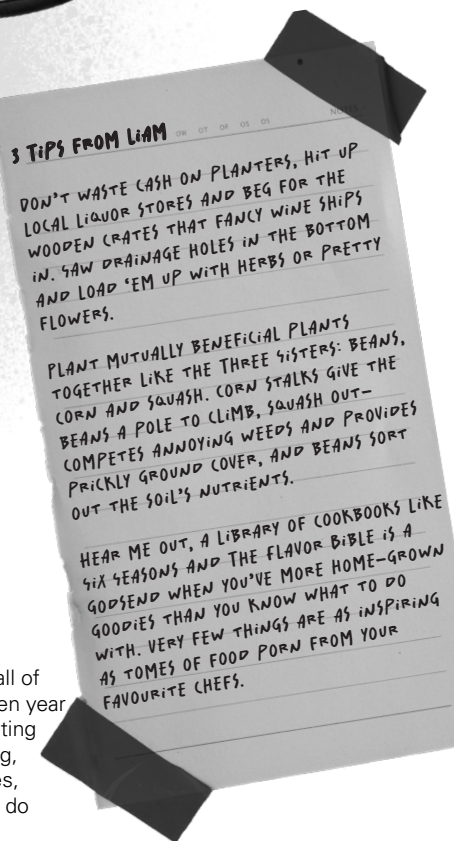 NOTES
3 TIPS FROM LIAM
DON'T WASTE CASH ON PLANTERS, HIT UP
LOCAL LIQUOR STORES AND BEG FOR THE
WOODEN CRATES THAT FANCY WINE SHIPS
IN. SAW DRAINAGE HOLES IN THE BOTTOM
AND LOAD 'EM UP WITH HERBS OR PRETTY
FLOWERS.
PLANT MUTUALLY BENEFICIAL PLANTS
TOGETHER LIKE THE THREE SISTERS: BEANS,
CORN AND SQUASH. CORN STALKS GIVE THE
BEANS A POLE TO CLIMB, SQUASH OUT-
COMPETES ANNOYING WEEDS AND PROVIDES
PRICKLY GROUND COVER, AND BEANS SORT
OUT THE SOIL'S NUTRIENTS.
HEAR ME OUT, A LIBRARY OF COOKBOOKS LIKE
SIX SEASONS AND THE FLAVOR BIBLE IS A
GODSEND WHEN YOU'VE MORE HOME-GROWN
GOODIES THAN YOU KNOW WHAT TO DO
WITH. VERY FEW THINGS ARE AS INSPIRING
AS TOMES OF FOOD PORN FROM YOUR
FAVOURITE CHEFS.
all of
en year
ting
g,
es,
do